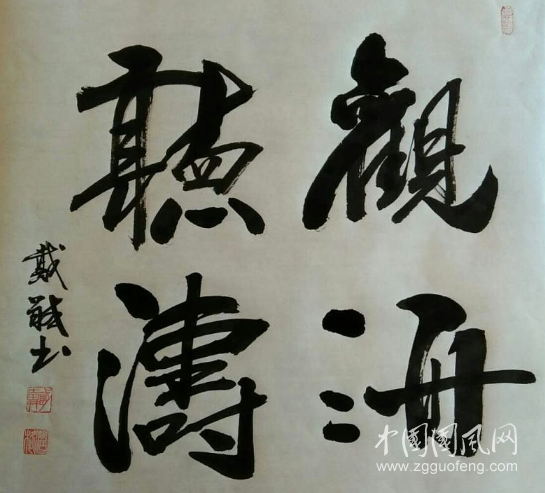 觀海
聽濤
戴
书
中国国风网
www.zgguofeng.com